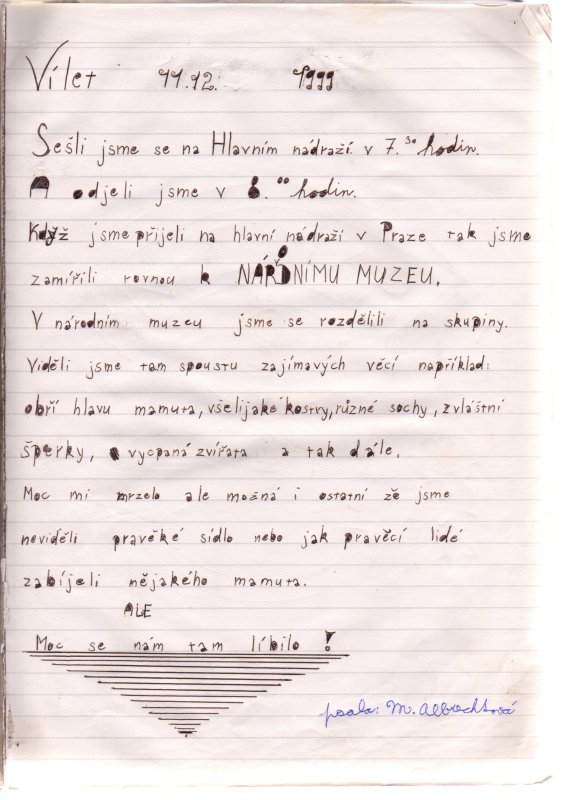 Vílet 11.12. 1999
Sešli jsme se na Hlavním nádraží v 7.30 hodin.
A odjeli jsme v 8.00 hodin.
Když jsme přijeli na hlavní nádraží v Praze tak jsme
zamířili rovnou k NÁRODNÍMU MUZEU.
V národním muzeu jsme se rozdělili na skupiny.
Viděli jsme tam spoustu zajímavých věcí například:
obří hlavu mamuta, všelijaké kostry, různé sochy, zvláštní
šperky, vycpaná zvířata a tak dále.
Moc mi mrzelo ale možná i ostatní že jsme
neviděli pravěké sídlo nebo jak pravěcí lidé
zabíjeli nějakého mamuta.
ALE
Moc se nám tam líbilo!
psala: M. Albrechtová